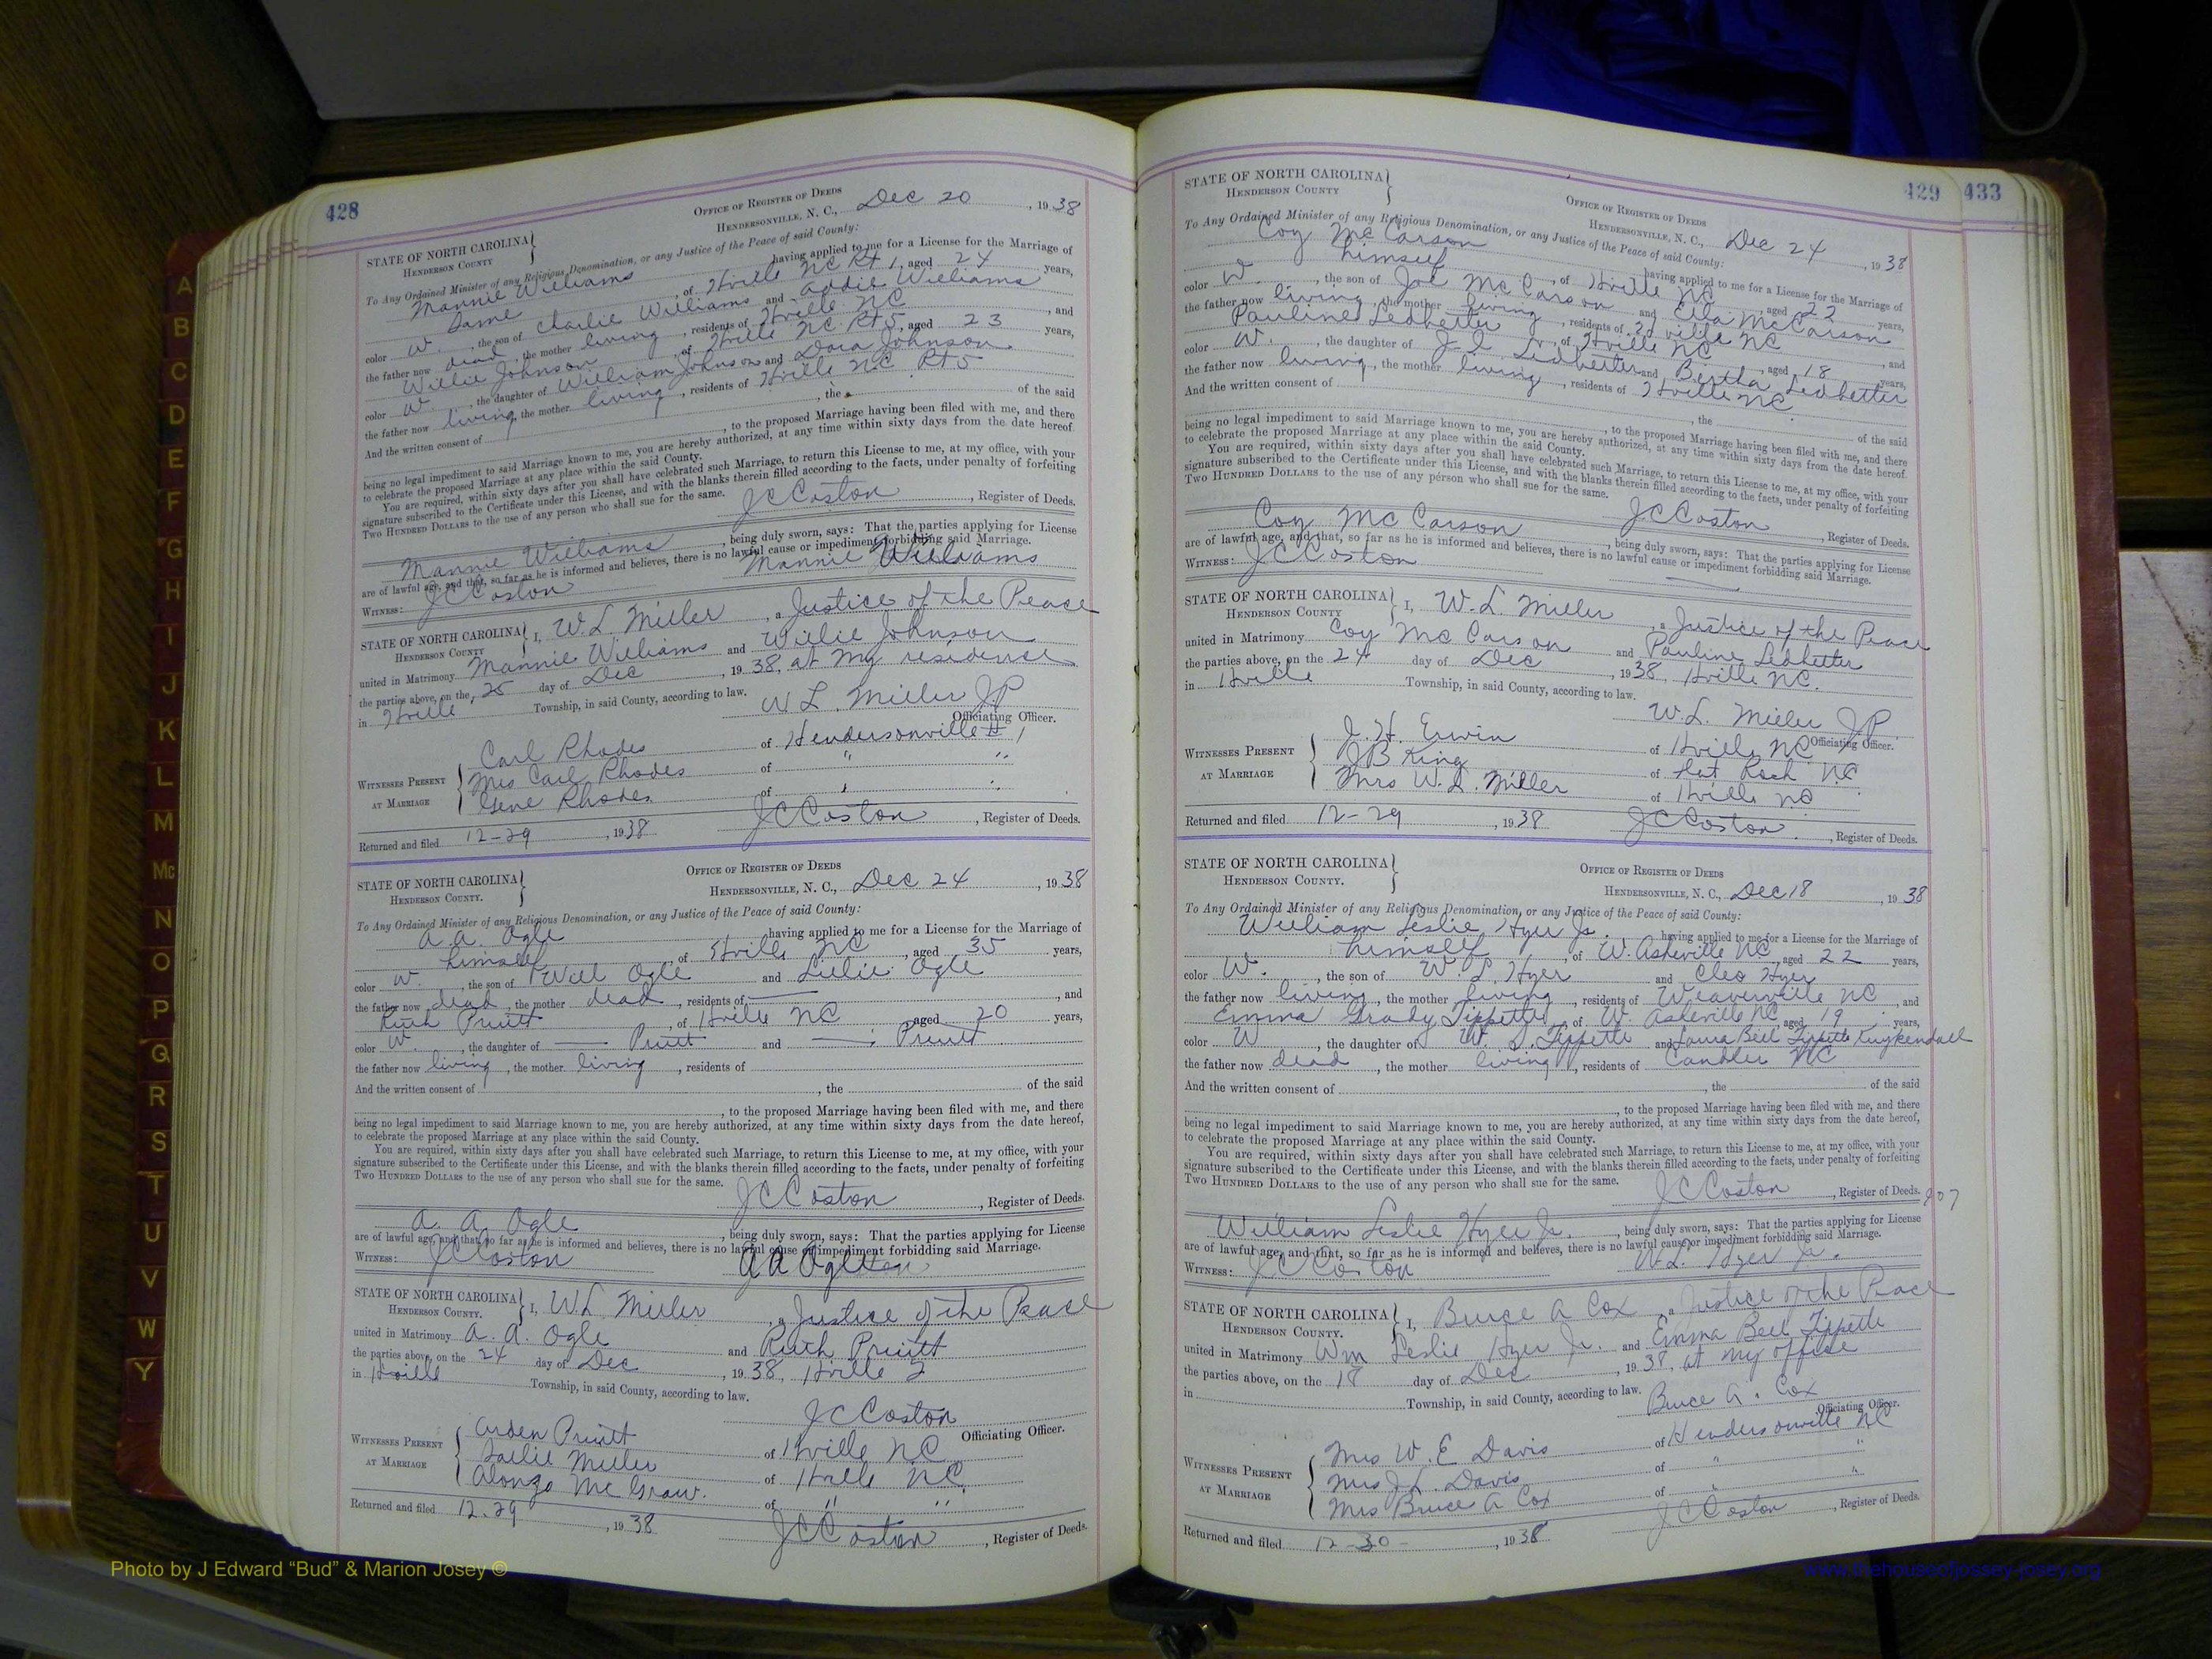 428
STATE OF NORTH CAROLINA
HENDERSON COUNTY
OFFICE OF REGISTER OF DEEDS
HENDERSONVILLE, N. C., Dec 20, 1938
To Any Ordained Minister of any Religious Denomination, or any Justice of the Peace of said County:
Mannie Williams having applied to me for a License for the Marriage of
Same, of Hville NC Rt 1, aged 24 years,
color W., the son of Charlie Williams and Addie Williams
the father now dead, the mother living, residents of Hville NC, and
Willie Johnson, of Hville NC Rt 5, aged 23 years,
color W., the daughter of William Johnson and Dora Johnson
the father now living, the mother living, residents of Hville NC Rt 5
And the written consent of, the of the said
, to the proposed Marriage having been filed with me, and there
being no legal impediment to said Marriage known to me, you are hereby authorized, at any time within sixty days from the date hereof,
to celebrate the proposed Marriage at any place within the said County.
You are required, within sixty days after you shall have celebrated such Marriage, to return this License to me, at my office, with your
signature subscribed to the Certificate under this License, and with the blanks therein filled according to the facts, under penalty of forfeiting
TWO HUNDRED DOLLARS to the use of any person who shall sue for the same.
JC Coston, Register of Deeds.
Mannie Williams, being duly sworn, says: That the parties applying for License
are of lawful age, and that, so far as he is informed and believes, there is no lawful cause or impediment forbidding said Marriage.
Mannie Williams
WITNESS: JC Coston
STATE OF NORTH CAROLINA
HENDERSON COUNTY
I, W. L. Miller, a Justice of the Peace
united in Matrimony Mannie Williams and Willie Johnson
the parties above, on the 25 day of Dec, 1938, at my residense
in Hville Township, in said County, according to law.
W L. Miller JP
Officiating Officer.
WITNESSES PRESENT AT MARRIAGE
Carl Rhodes of Hendersonville # 1
Mrs Carl Rhodes of " "
Gene Rhodes of " "
Returned and filed 12-29, 1938 JC Coston, Register of Deeds.
STATE OF NORTH CAROLINA
HENDERSON COUNTY.
OFFICE OF REGISTER OF DEEDS
HENDERSONVILLE, N. C., Dec 24, 1938
To Any Ordained Minister of any Religious Denomination, or any Justice of the Peace of said County:
A. A. Ogle having applied to me for a License for the Marriage of
himself, of Hville NC, aged 35 years,
color W., the son of Will Ogle and Lillie Ogle
the father now dead, the mother dead, residents of, and
Ruth Pruitt, of Hville NC, aged 20 years,
color W., the daughter of — Pruitt and — Pruitt
the father now living, the mother living, residents of
And the written consent of, the of the said
, to the proposed Marriage having been filed with me, and there
being no legal impediment to said Marriage known to me, you are hereby authorized, at any time within sixty days from the date hereof,
to celebrate the proposed Marriage at any place within the said County.
You are required, within sixty days after you shall have celebrated such Marriage, to return this License to me, at my office, with your
signature subscribed to the Certificate under this License, and with the blanks therein filled according to the facts, under penalty of forfeiting
TWO HUNDRED DOLLARS to the use of any person who shall sue for the same.
JC Coston, Register of Deeds.
A. A. Ogle, being duly sworn, says: That the parties applying for License
are of lawful age, and that, so far as he is informed and believes, there is no lawful cause or impediment forbidding said Marriage.
WITNESS: JC Coston
STATE OF NORTH CAROLINA
HENDERSON COUNTY.
I, W. L. Miller, a Justice of the Peace
united in Matrimony A. A. Ogle and Ruth Pruitt
the parties above, on the 24 day of Dec, 1938, Hville 2
in Hville Township, in said County, according to law.
JC Coston
Officiating Officer.
WITNESSES PRESENT AT MARRIAGE
Arden Pruitt of Hville NC
Sallie Miller of Hville NC.
Alonzo McGraw. of " "
Returned and filed 12-29, 1938 JC Coston, Register of Deeds.
429 433
STATE OF NORTH CAROLINA
HENDERSON COUNTY
OFFICE OF REGISTER OF DEEDS
HENDERSONVILLE, N. C., Dec 24, 1938
To Any Ordained Minister of any Religious Denomination, or any Justice of the Peace of said County:
Coy McCarson having applied to me for a License for the Marriage of
himself, of Hville NC, aged 22 years,
color W, the son of Joe McCarson and Ella McCarson
the father now living, the mother living, residents of Hville NC
Pauline Ledbetter, of Hville NC, aged 18 years, and
color W., the daughter of Ledbetter and Bertha Ledbetter
the father now living, the mother living, residents of Hville NC
And the written consent of, the of the said
, to the proposed Marriage having been filed with me, and there
being no legal impediment to said Marriage known to me, you are hereby authorized, at any time within sixty days from the date hereof.
to celebrate the proposed Marriage at any place within the said County.
You are required, within sixty days after you shall have celebrated such Marriage, to return this License to me, at my office, with your
signature subscribed to the Certificate under this License, and with the blanks therein filled according to the facts, under penalty of forfeiting
TWO HUNDRED DOLLARS to the use of any person who shall sue for the same.
JC Coston, Register of Deeds.
Coy McCarson, being duly sworn, says: That the parties applying for License
are of lawful age, and that, so far as he is informed and believes, there is no lawful cause or impediment forbidding said Marriage.
WITNESS: JC Coston
STATE OF NORTH CAROLINA
HENDERSON COUNTY
I, W. L. Miller, a Justice of the Peace
united in Matrimony Coy McCarson and Pauline Ledbetter
the parties above, on the 24 day of Dec, 1938, Hville NC.
in Hville Township, in said County, according to law.
W. L. Miller JP
Officiating Officer.
WITNESSES PRESENT AT MARRIAGE
J. H. Erwin of Hville NC
JB King of Flat Rock NC
Mrs W. L. Miller of Hville NC
Returned and filed 12-29, 1938 JC Coston., Register of Deeds.
STATE OF NORTH CAROLINA
HENDERSON COUNTY.
OFFICE OF REGISTER OF DEEDS
HENDERSONVILLE, N. C., Dec 18, 1938
To Any Ordained Minister of any Religious Denomination, or any Justice of the Peace of said County:
William Leslie Hyer Jr. having applied to me for a License for the Marriage of
himself, of W. Asheville NC, aged 22 years,
color W., the son of W. L. Hyer and Cleo Hyer
the father now living, the mother living, residents of Weaverville NC, and
Emma Grady Tippette, of W. Asheville NC, aged 19 years,
color W, the daughter of Tippette and Laura Bell Tippette Kuykendall
the father now dead, the mother living, residents of Candler NC
And the written consent of, the of the said
, to the proposed Marriage having been filed with me, and there
being no legal impediment to said Marriage known to me, you are hereby authorized, at any time within sixty days from the date hereof,
to celebrate the proposed Marriage at any place within the said County.
You are required, within sixty days after you shall have celebrated such Marriage, to return this License to me, at my office, with your
signature subscribed to the Certificate under this License, and with the blanks therein filled according to the facts, under penalty of forfeiting
TWO HUNDRED DOLLARS to the use of any person who shall sue for the same.
JC Coston, Register of Deeds.
William Leslie Hyer Jr., being duly sworn, says: That the parties applying for License
are of lawful age, and that, so far as he is informed and believes, there is no lawful cause or impediment forbidding said Marriage.
W.L. Hyer Jr.
WITNESS: JC Coston
STATE OF NORTH CAROLINA
HENDERSON COUNTY.
I, Bruce A Cox, a Justice of the Peace
united in Matrimony Wm Leslie Hyer Jr. and Emma Bell Tippette
the parties above, on the 18 day of Dec, 1938, at my office
in Township, in said County, according to law.
Bruce A. Cox
Officiating Officer.
WITNESSES PRESENT AT MARRIAGE
Mrs W. E Davis of Hendersonville NC
Mrs J. L. Davis of " "
Mrs Bruce A Cox of " "
Returned and filed 12-30-, 1938 JC Coston, Register of Deeds.
A
B
C
D
E
F
G
H
I
J
K
L
M
Mc
N
O
P
Q
R
S
T
U
V
W
Y
Photo by J Edward “Bud” & Marion Josey ©
www.thehouseofjossey-josey.org